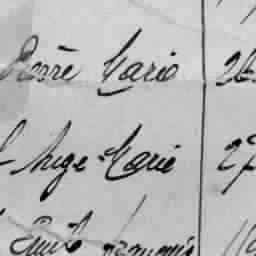 Pierre Marie 26
Ange Marie 27
Emile François